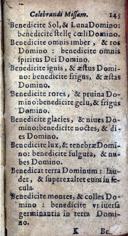 Celebrandi Missam. 145
Benedicite Sol, & Luna Domino:
benedicite stellę cœli Domino.
Benedicite omnis imber, & ros
Domino: benedicite omnis
spiritus Dei Domino.
Benedicite ignis, & æstus Domi-
no: benedicite frigus, & æstus
Domino.
Benedicite rores, & pruina Do-
mino: benedicite gelu, & frigus
Domino.
Benedicite glacies, & niues Domi-
no: benedicite noctes, & di-
es Domino.
Benedicite lux, & tenebræ Domi-
no: benedicite fulgura, & nu-
bes Domino.
Benedicat terra Dominum: lau-
det, & superexaltet eum in se-
cula.
Benedicite montes, & colles Do-
mino: benedicite vniuersa
germinantia in terra Domi-
no.
K Be-